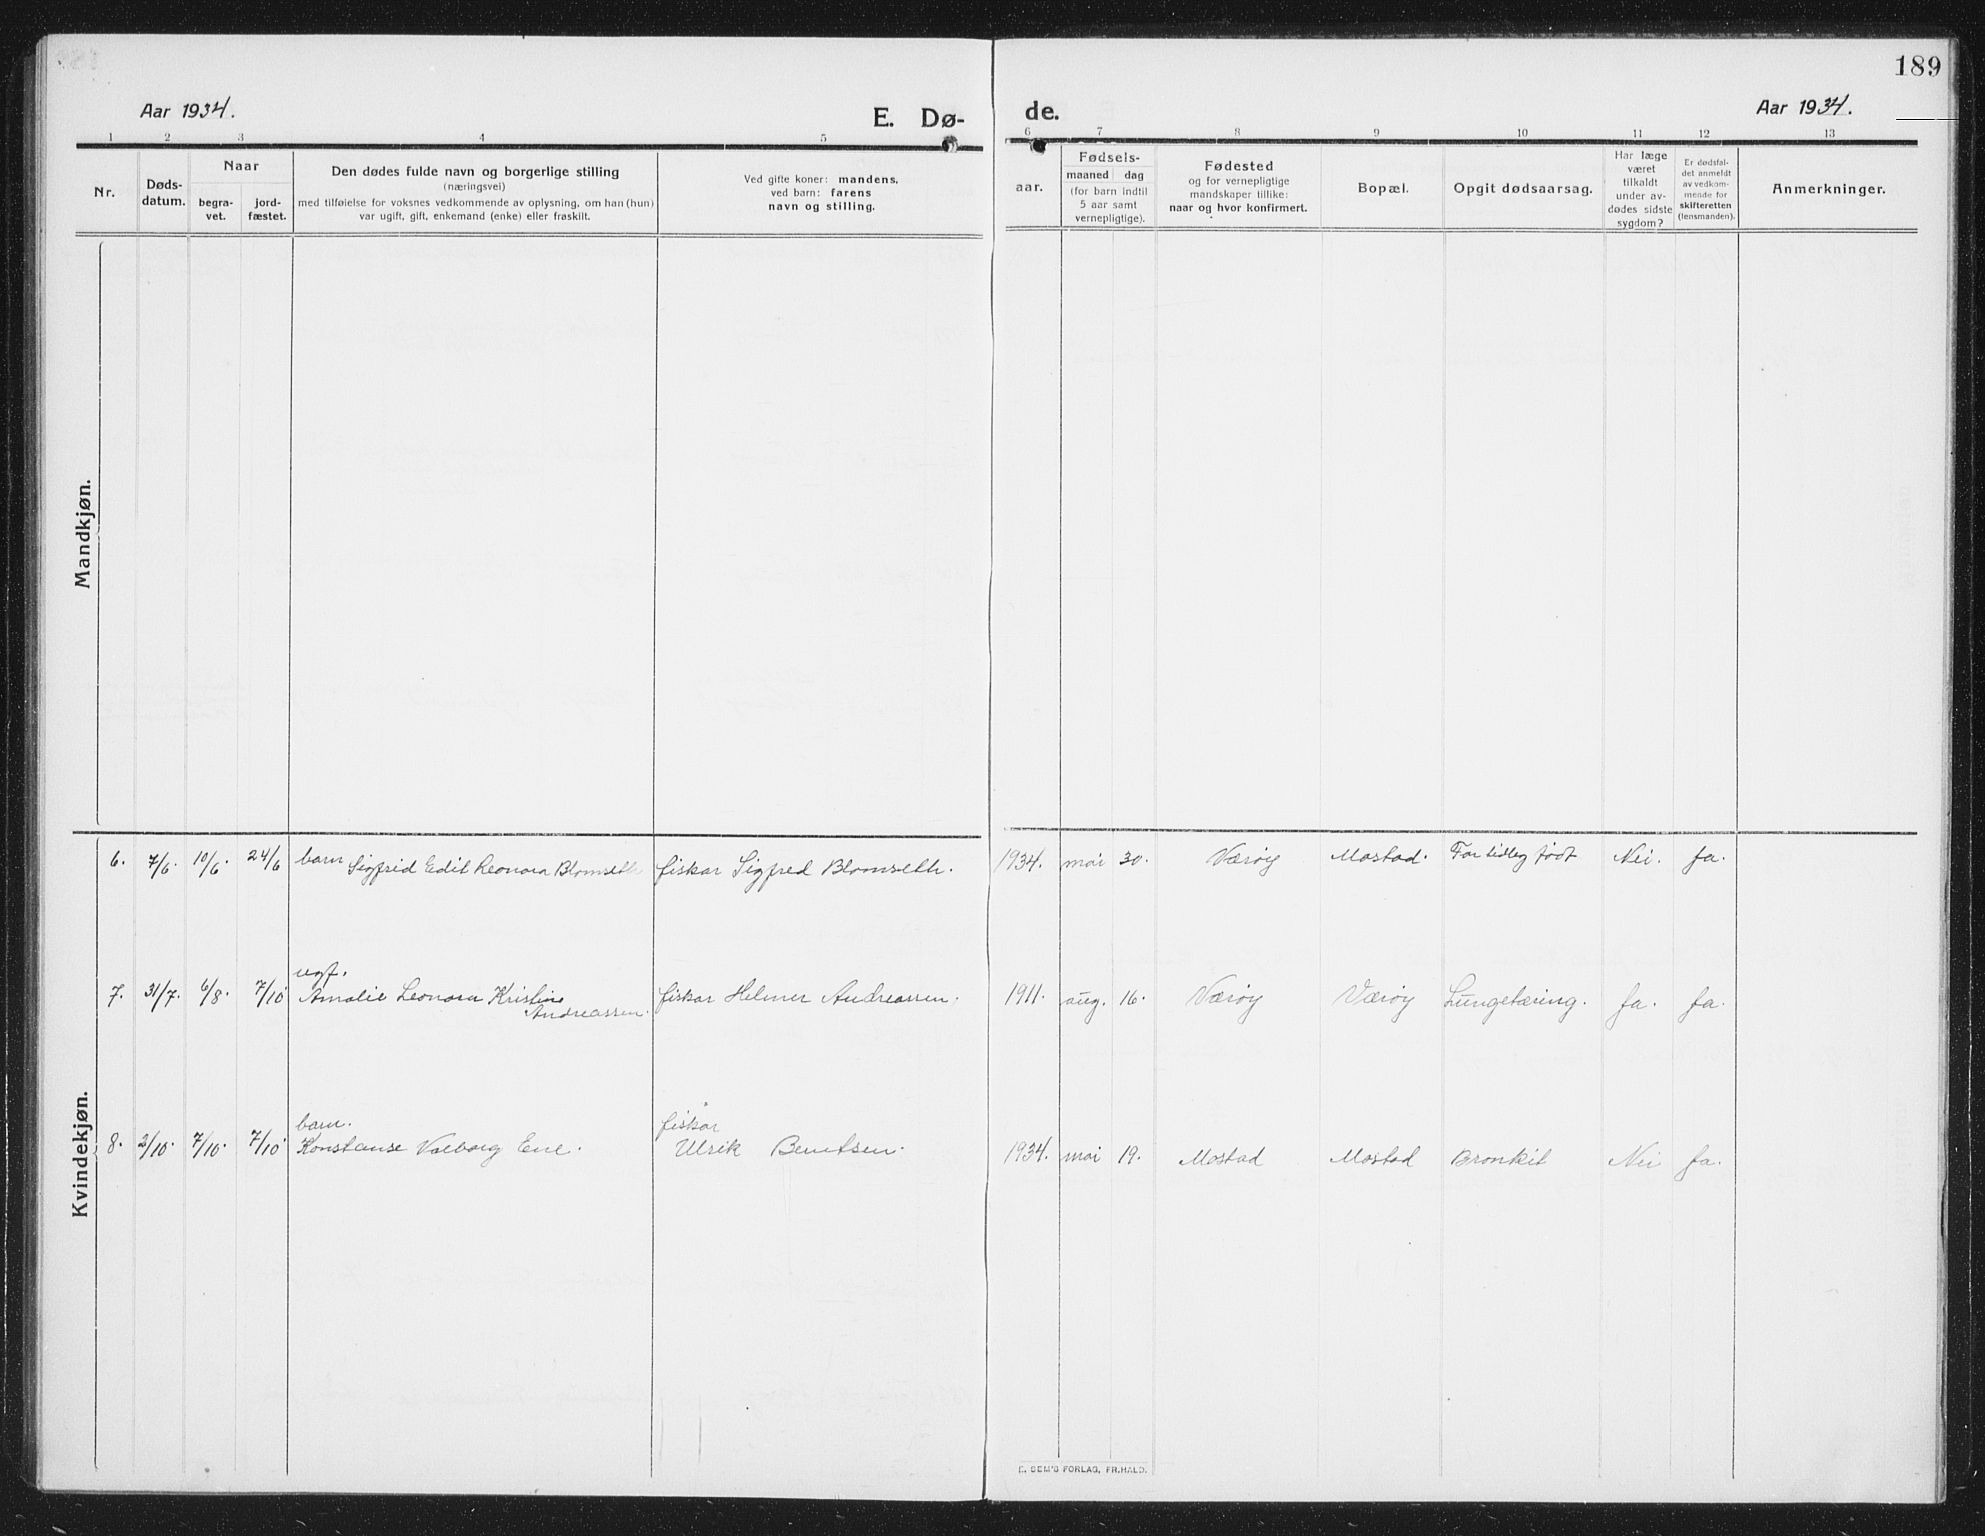 189
Aar 1934.
E. Dø-
de.
Aar 1934.
1 2 3 4 5 6 7 8 9 10 11 12 13
Nr.
Døds-
datum.
Naar
begra-
vet.
jord-
fæstet.
Den dødes fulde navn og borgerlige stilling
(næringsvei)
med tilføielse for voksnes vedkommende av oplysning, om han (hun)
var ugift, gift, enkemand (enke) eller fraskilt.
Ved gifte koner: mandens.
ved barn: farens
navn og stilling.
aar.
Fødsels-
maaned dag
(for barn indtil
5 aar samt
vernepligtige).
Fødested
og for vernepligtige
mandskaper tillike:
naar og hvor konfirmert.
Bopæl.
Opgit dødsaarsag.
Har læge
været
tilkaldt
under av-
dødes sidste
sygdom?
Er dødsfal-
det anmeldt
av vedkom-
mende for
skifteretten
(lensmanden).
Anmerkninger.
Mandkjøn.
Kvindekjøn.
6. 7/6. 10/6. 24/6 barn Sigfrid Edit Leonora Blomseth fiskar Sigfred Blomseth. 1934. mai 30. Værøy Mostad. For tidleg født Nei. Ja.
ugf.
7. 31/7. 6/8. 7/10 Amalie Leonora Kristine fiskar Helmer Andreassen. 1911. aug. 16. Værøy Værøy Lungetæring. Ja. Ja.
Andreassen.
barn. fiskar
8. 2/10. 7/10. 7/10 Konstanse Valborg Ene. Ulrik Berntsen. 1934. mai 19. Mostad Mostad Bronkit Nei Ja.
E. SEM'S FORLAG, FR.HALD.